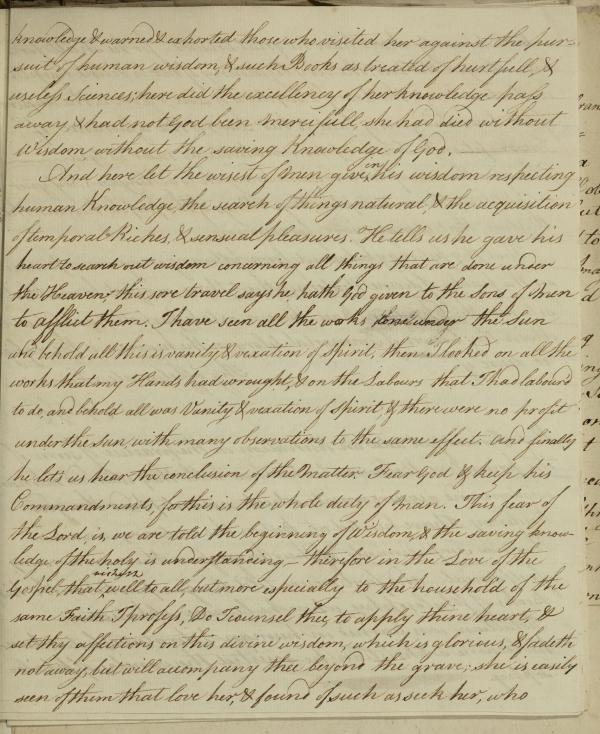 knowledge & warned & exhorted those who visited her against the pur=
suit of human wisdom, & such Books as treated of hurtfull, &
useless Sciences; here did the excellency of her knowledge pass
away, & had not God been mercifull, she had died without
Wisdom without the saving Knowledge of God.
And here let the wisest of men give in his wisdom respecting
human Knowledge, the search of things natural, & the acquisition
of temporal Riches, & sensual pleasures. He tells us he gave his
heart to search out wisdom concerning all things that are done under
the Heaven; this sore travel says he hath God given to the Sons of Men
to afflict them. I have seen all the works done under the Sun
and behold all this is vanity & vexation of Spirit, then I looked on all the
works that my Hands had wrought, & on the Labours that I had labourd
to do, and behold all was Vanity & vexation of Spirit, & there were no profit
under the sun, with many observations to the same effect. And finally
he lets us hear the conclusion of the Matter. Fear God & keep his
Commandments, for this is the whole duty of Man. This fear of
the Lord, is, we are told the beginning of Wisdom, & the saving know-
ledge of the holy is understanding - therefore in the Love of the
Gospel, that wishes well to all, but more especially to the household of the
same Faith I profess, Do I counsel thee, to apply thine heart, &
set thy affections on this divine wisdom, which is glorious, & fadeth
not away, but will accompany thee beyond the grave; she is easily
seen of them that love her, & found of such as seek her, who